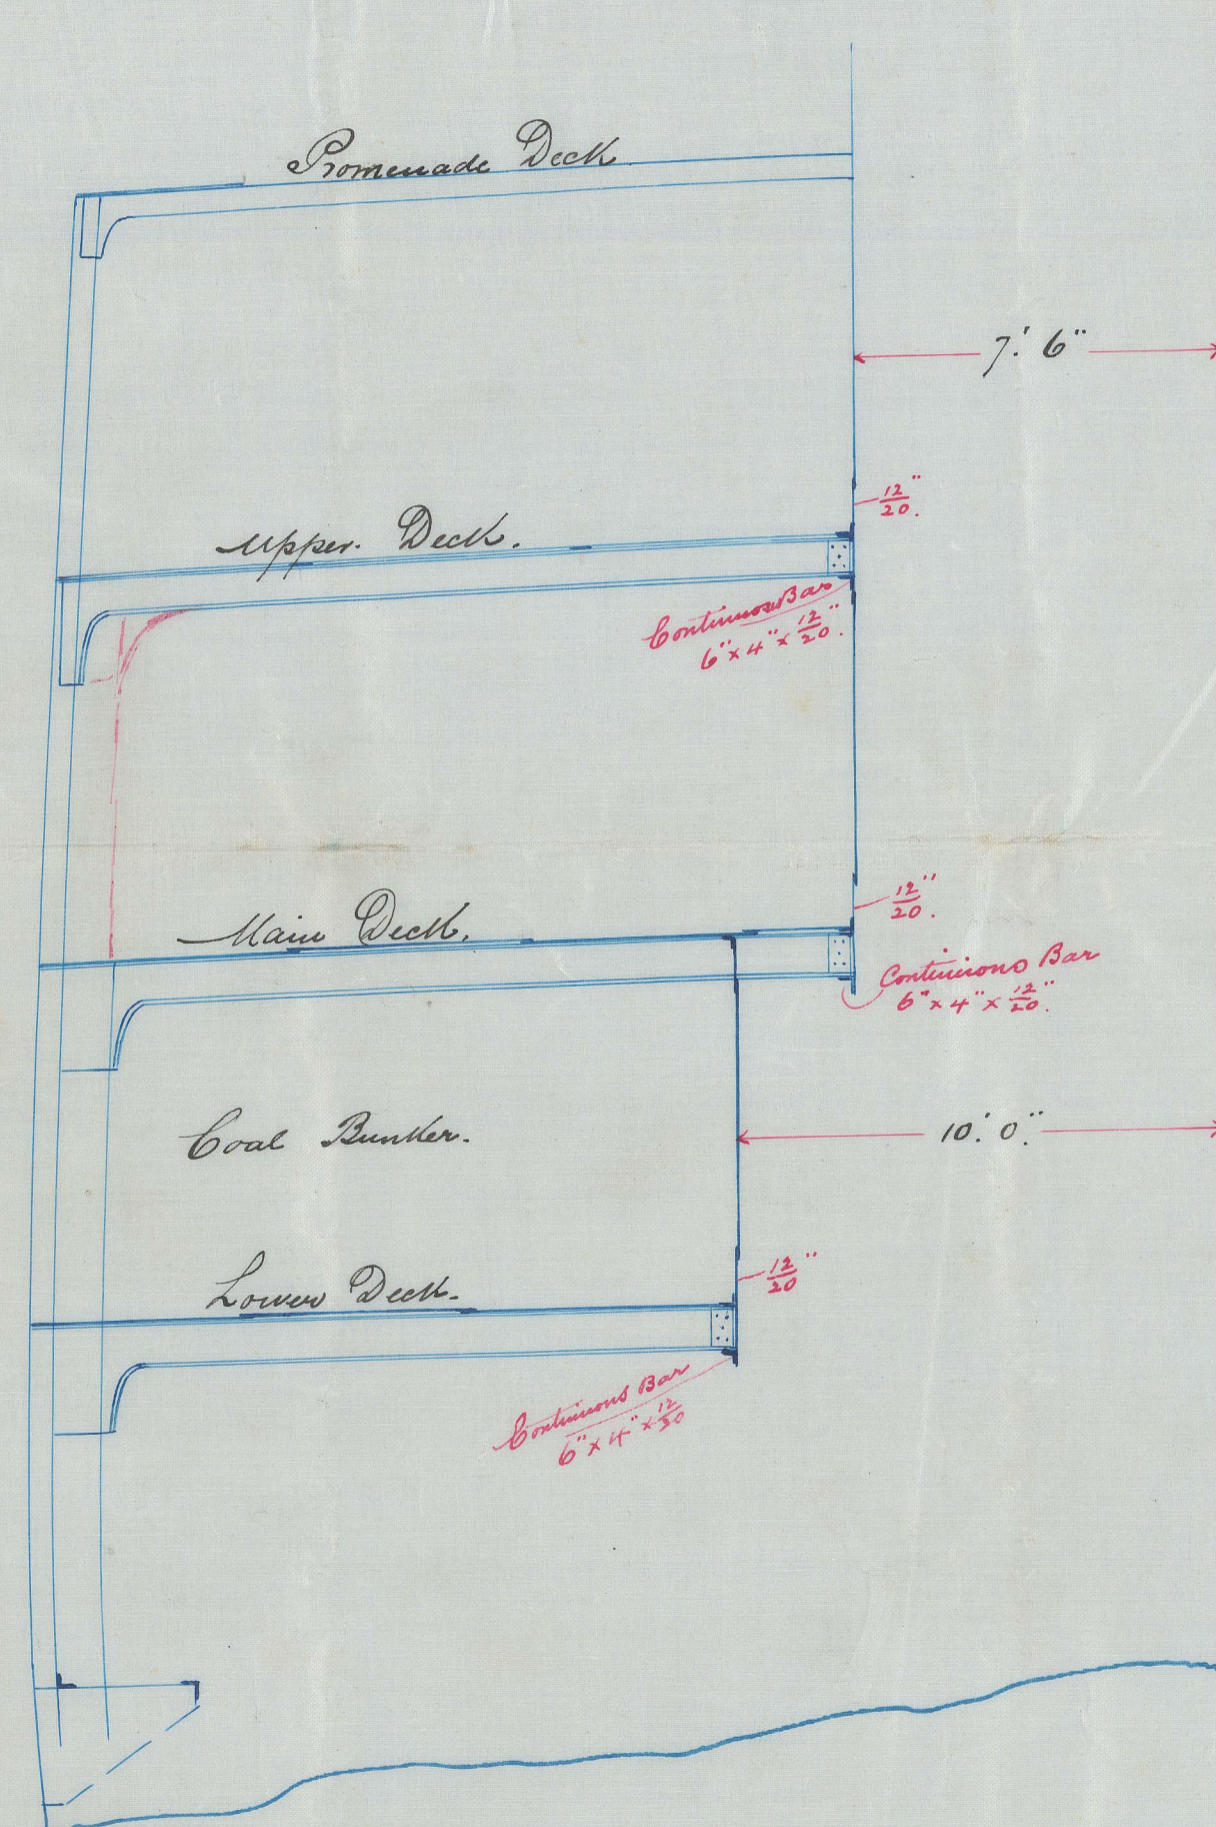 Promenade Deck
7'. 6"
12"
20.
Upper. Deck.
Continuous Bar
6" x 4" x 12/20".
12"
20.
Main Deck.
Continuous Bar
6" x 4" x 12/20".
Coal Bunker.
10'. 0".
12"
20
Lower Deck.
Continuous Bar
6" x 4" x 12/20